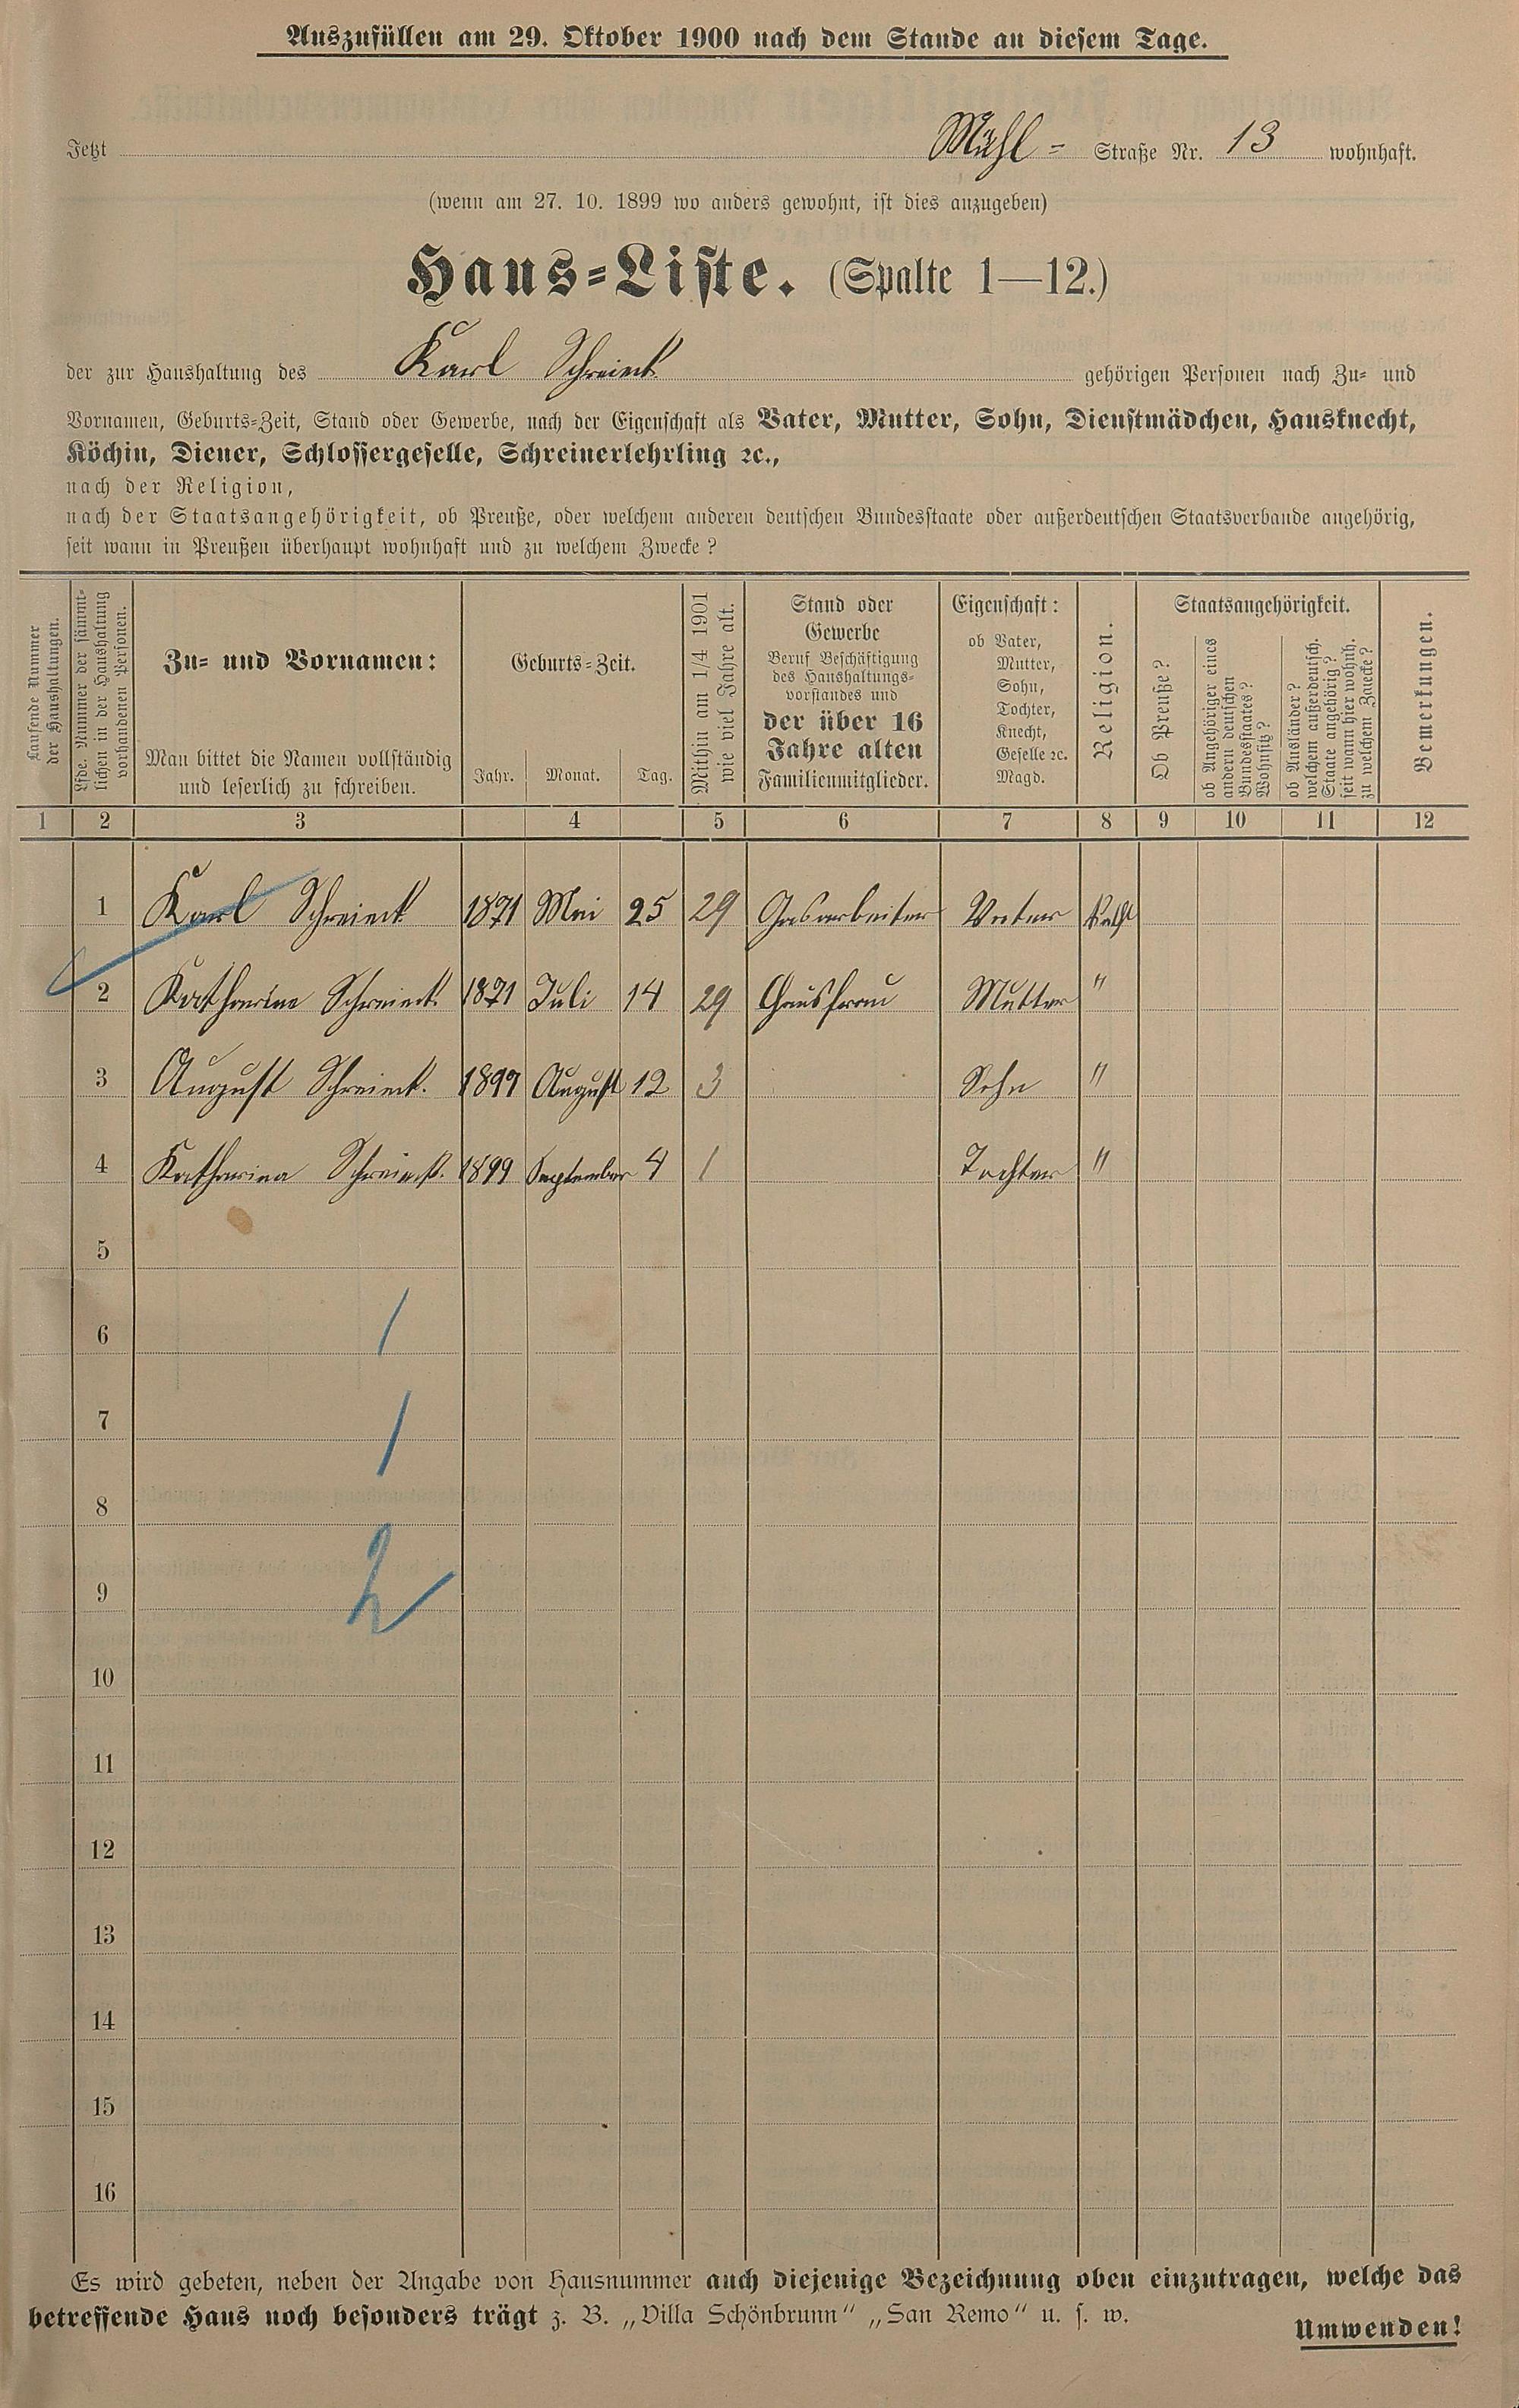 Auszufüllen am 29. Oktober 1900 nach dem Stande an diesem Tage.
Jetzt Mühl= Straße Nr. 13 wohnhaft.
(wenn am 27. 10. 1899 wo anders gewohnt, ist dies anzugeben)
Haus=Liste. (Spalte 1—12.)
der zur Haushaltung des Karl Schreieck gehörigen Personen nach Zu= und
Vornamen, Geburts=Zeit, Stand oder Gewerbe, nach der Eigenschaft als Vater, Mutter, Sohn, Dienstmädchen, Hausknecht,
Köchin, Diener, Schlossergeselle, Schreinerlehrling ꝛc.,
nach der Religion,
nach der Staatsangehörigkeit, ob Preuße, oder welchem anderen deutschen Bundesstaate oder außerdeutschen Staatsverbande angehörig,
seit wann in Preußen überhaupt wohnhaft und zu welchem Zwecke?
Laufende Nummer
der Haushaltungen.
Lfde. Nummer der sämmt=
lichen in der Haushaltung
vorhandenen Personen.
Zu= und Vornamen:
Man bittet die Namen vollständig
und leserlich zu schreiben.
Geburts=Zeit.
Jahr. Monat. Tag.
Mithin am 1/4 1901
wie viel Jahre alt.
Stand oder
Gewerbe
Beruf Beschäftigung
des Haushaltungs=
vorstandes und
der über 16
Jahre alten
Familienmitglieder.
Eigenschaft:
ob Vater,
Mutter,
Sohn,
Tochter,
Knecht,
Geselle ꝛc.
Magd.
Religion.
Staatsangehörigkeit.
Ob Preuße?
ob Angehöriger eines
andern deutschen
Bundesstaates?
Wohnsitz?
ob Ausländer?
welchem außerdeutsch.
Staate angehörig?
seit wann hier wohnh.
zu welchem Zwecke?
Bemerkungen.
1 2 3 4 5 6 7 8 9 10 11 12
1 Karl Schreieck 1871 Mai 25 29 Gasarbeiter Vater Kath
2 Katharina Schreieck. 1871 Juli 14 29 Hausfrau Mutter "
3 August Schreieck. 1897 August 12 3 Sohn "
4 Katharina Schreieck. 1899 September 4 1 Tochter "
5
6 1
7 1
8
9 2
10
11
12
13
14
15
16
Es wird gebeten, neben der Angabe von Hausnummer auch diejenige Bezeichnung oben einzutragen, welche das
betreffende Haus noch besonders trägt z. B. „Villa Schönbrunn" „San Remo" u. s. w.
Umwenden!